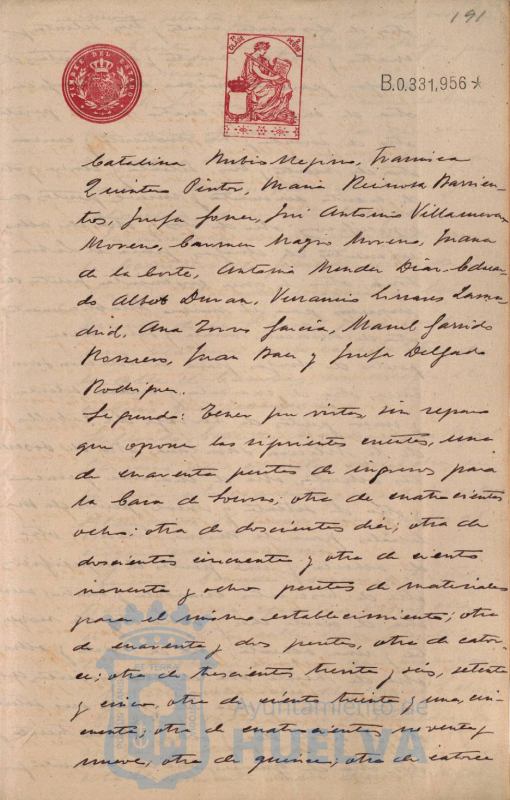 191
TIMBRE DEL ESTADO
B.0.331,956
Catalina Rubio Negino, Francisca
Quintero Pintor, Maria Reinosa Barrien-
tos, Josefa Joner, José Antonio Villanueva
Moreno, Carmen Magro Moreno, Juana
de la Corte, Antonio Mendez Diaz, Eduar-
do Albot Duran, Venancio Linares Lama-
drid, Ana Torres García, Manuel Garrido
Romero, Juan Baez y Josefa Delgado
Rodriguez.
Segundo: Tener por vistas, sin reparo
que oponer las siguientes cuentas, una
de cuarenta pesetas de ingresos para
la Casa de Socorro; otra de cuatrocientos
ocho; otra de doscientos diez; otra de
doscientos cincuenta y otra de ciento
noventa y ocho pesetas de materiales
para el mismo establecimiento; otra
de cuarenta y dos pesetas, otra de cator-
ce; otra de trescientos treinta y seis, setenta
y cinco, otra de ciento treinta y una, cin-
cuenta; otra de cuatrocientos noventa y
nueve, otra de quince; otra de catorce
Ayuntamiento de
HUELVA